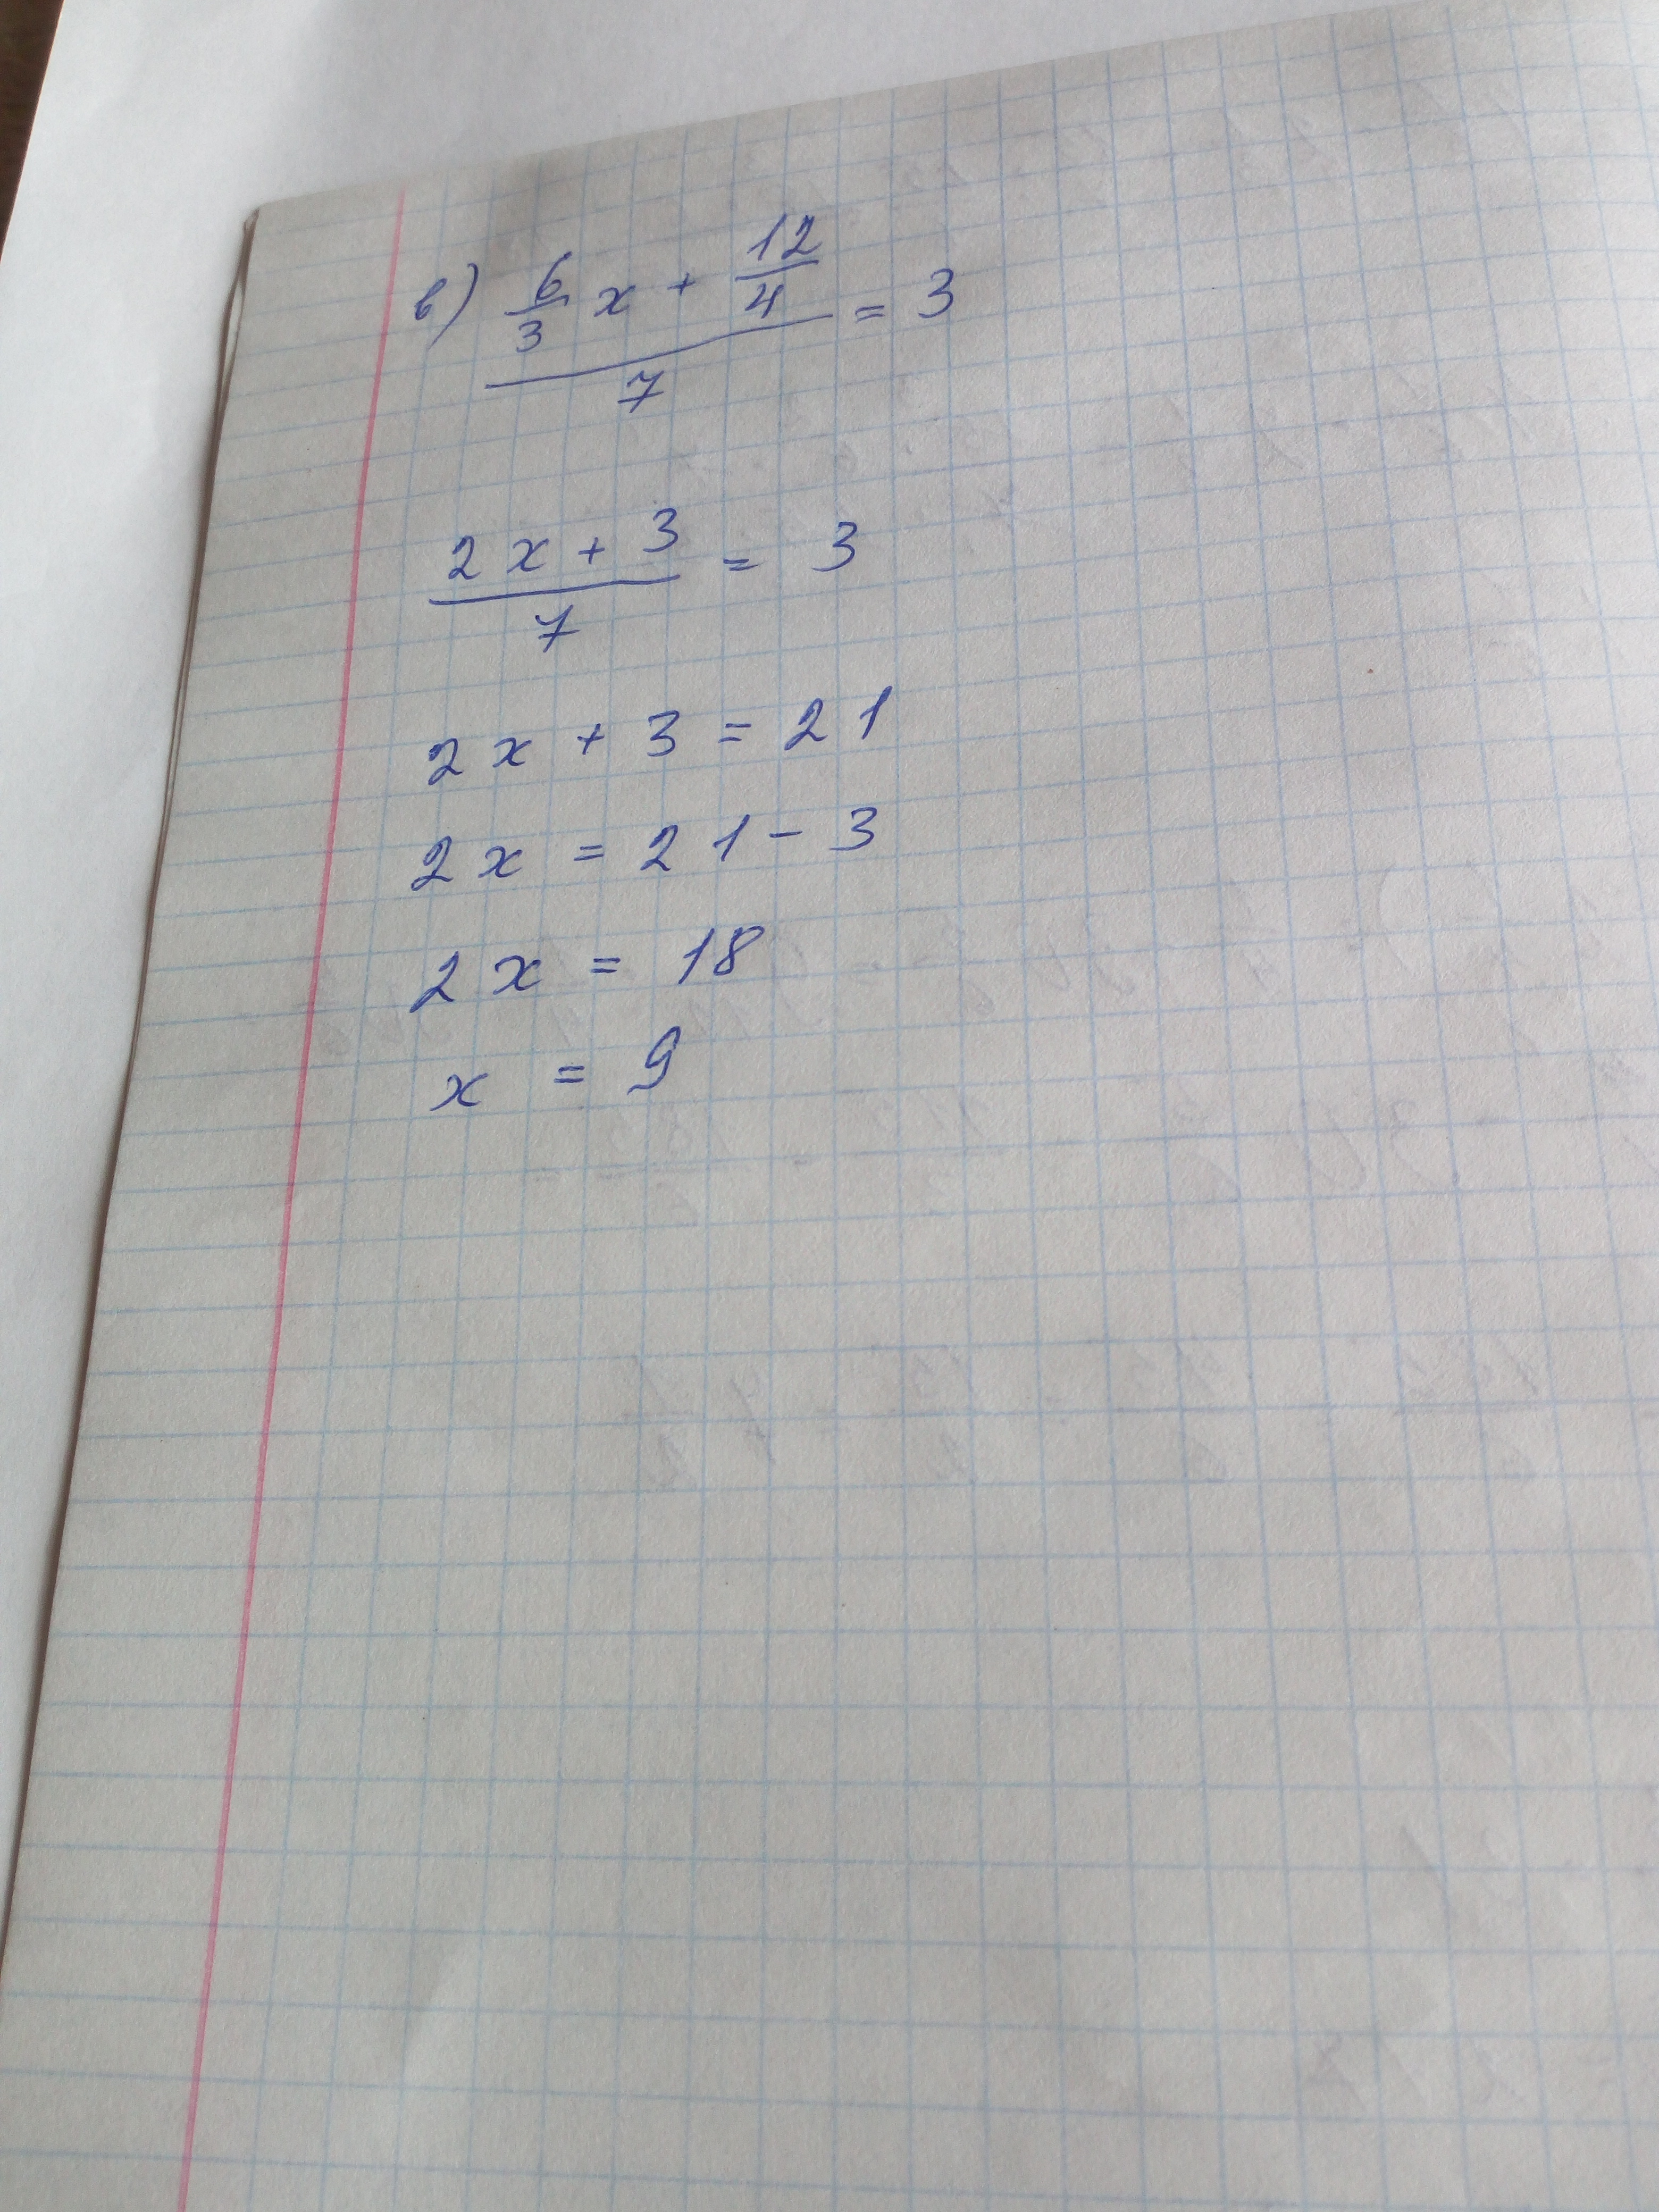 в) (6/3 x + 12/4)/7 = 3
(2x + 3)/7 = 3
2x + 3 = 21
2x = 21 - 3
2x = 18
x = 9